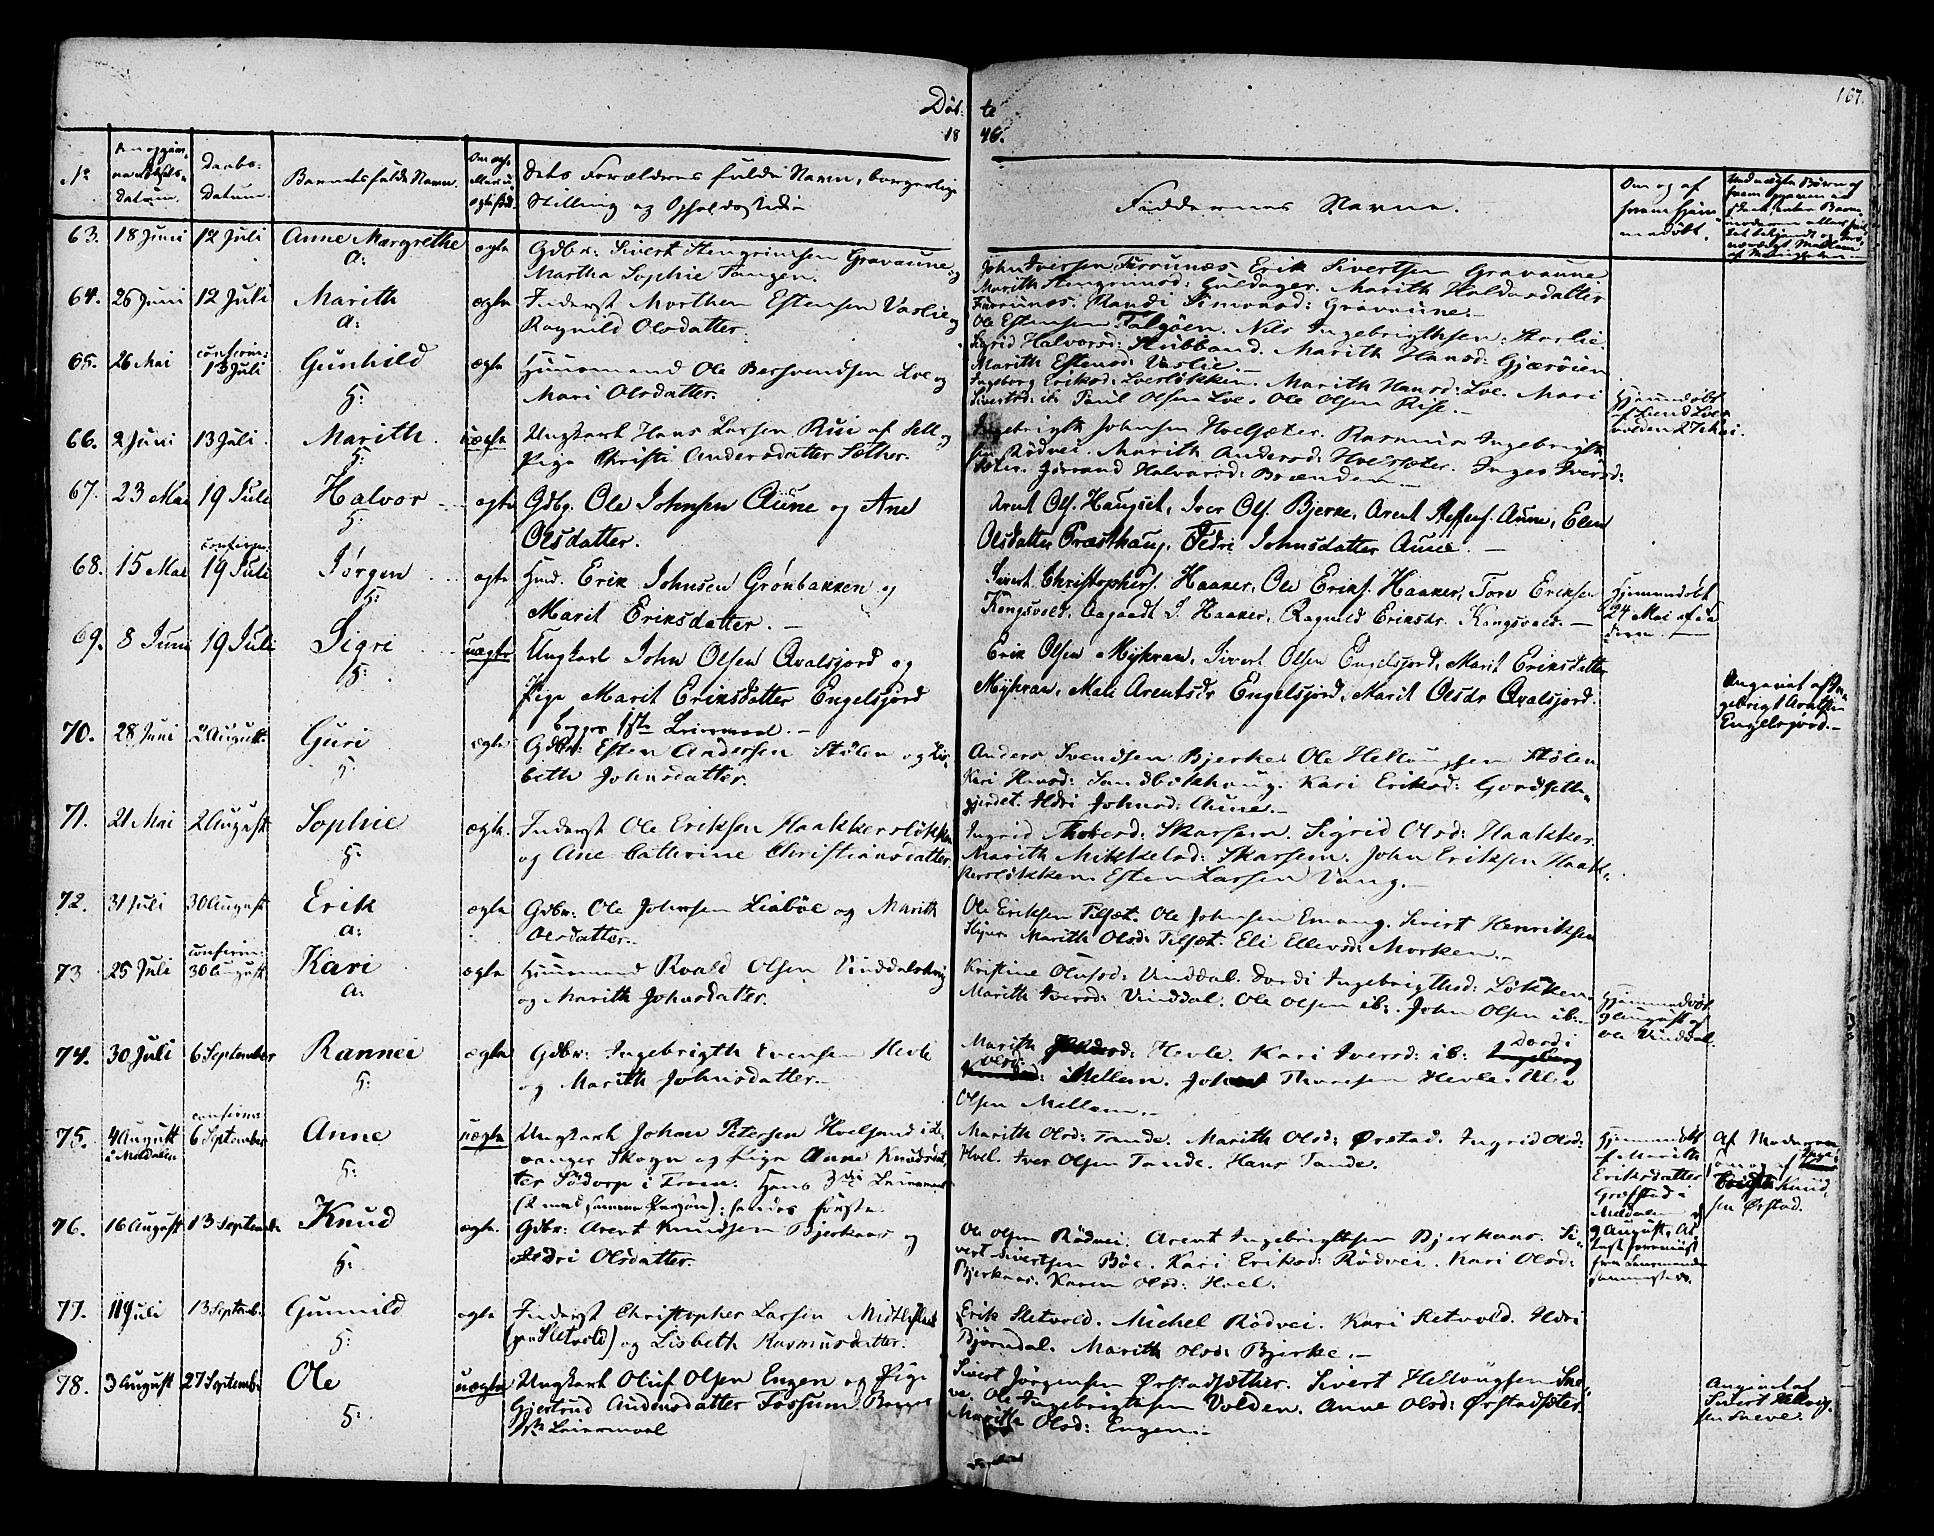 Døb- te
167.
18 46.
No
Datum.
Daabs-
Datum.
Barnets fulde Navn.
dets Forældres fulde Navn, borgerlige
Stilling og Opholdssted.
Faddernes Navne.
Om og af
hvem hjem-
medøbt.
63. 18 Juni 12 Juli Anne Margrethe a: ægte Gdbr: Sivert Stengrimsen Gravaune og
Martha Sophie Tangen.
John Iversen Furrunæs Erik Sivertsen Gravaune
Marith Stengrimsd: Guldager. Marith Haldorsdatter
Furrunæs. Randi Simonsd: Gravaune.
64. 26 Juni 12 Juli Marith a: ægte Inderst Morthen Estensen Vaslie og
Ragnild Olsdatter.
Ole Estensen Talgøen. Nils Ingebrigthsen
Sigrid Halvorsd: Stubband. Marith Hansd: Gjærøien
Marith Estensd: Vaslie.
65. 26 Mai confirm: 13 Juli Gunhild 5: ægte Huusmand Ole Bersvendsen Loe og
Mari Olsdatter.
Ingeborg Eriksd: Loesløkken. Marith Hansd: Loe. Mari
Sivertsd: ib: Poul Olsen Loe. Ole Olsen Rise.
Hjemmedøbt
27 Mai.
66. 2 Juni 13 Juli. Marith. 5: uægte Ungkarl Hans Larsen Rui af
Pige Christi Andersdatter Sæther.
Ingebrigth Johnsen Hvelsæter. Rasmus Ingebrigth-
sen Rødvei. Marith Andersd: Hvelsæter. Inger Iversd:
Gjørrand Halvorsd: Brænden.
67. 23 Mai 19 Juli Halvor 5: ægte Gdbg. Ole Johnsen Aune og Ane
Olsdatter.
Arent Ols. Haugset, Iver Ols. Bjerke, Arent Steffens. Aune, Elen
Olsdatter Præsthaug, Sedri Johnsdatter Aune.
68. 15 Mai confirm: 19 Juli Jørgen 5: ægte Hmd. Erik Johnsen Grønbakken og
Marit Eriksdatter.
Sivert Christophers. Haaker, Ole Eriks. Haaker, Tore Eriksen
Kongsvold, Aagaadt I. Haaker, Ragnild Eriksdr. Kongsvold.
Hjemmedøbt
24 Mai af
69. 8 Juni 19 Juli Sigri 5: uægte Ungkarl John Olsen Qvalsjord og
Pige Marit Eriksdatter Engelsjord
begges 1ste Leiermaal.
Erik Olsen Myhran, Sivert Olsen Engelsjord, Marit Eriksdatter
Myhran, Mali Arentsdr Engelsjord, Marit Olsdr Qvalsjord.
Angivet af In-
gebrigt
Engelsjord.
70. 28 Juni 2 August Guri 5: ægte Gdbr: Esten Andersen Stølen og Lis-
beth Johnsdatter.
Anders Svendsen Bjerke. Ole Hellougsen Stølen
Kari Hansd: Sandbækhaug. Kari Eriksd: Gordsette-
gjerdet. Ildri Johnsd: Aune.
71. 21 Mai 2 August Sophie 5: ægte. Inderst Ole Eriksen Haakkersløkken
og Ane Cathrine Christiansdatter.
Ingrid Skarsem. Sigrid Olsd: Haakker.
Marith Mikkelsd: Skarsem. John Eriksen Haak-
kersløkken. Esten Larsen Vang.
72. 31 Juli 30 August Erik a: ægte Gdbr: Ole Johnsen Liabøe og Marith
Olsdatter.
Ole Eriksen Tilset. Ole Johnsen Emang. Sivert Henriksen
Marith Olsd: Tilset. Eli Ellevsd: Morken.
73 25 Juli confirm: 30 August Kari a: ægte Huusmand Roald Olsen Vinddalsteig
og Marith Johnsdatter.
Kristine Olufsd: Vinddal. Dordi Ingebrigthsd: Løkken.
Marith Iversd: Vinddal. Ole Olsen ib:. John Olsen ib:
Hjemmedøbt
9 August af
Ole Vinddal.
74. 30 Juli 6 September Rannei 5: ægte Gdbr: Ingebrigth Evensen Hevle
og Marith Johnsdatter.
Marith Hevle. Kari Iversd: ib: Dordi
Olsd: Mellem. John Thoresen Hevle. Ole
Olsen Mellem.
75. 4 August i Meldalen confirm: 6 September Anne 5: uægte Ungkarl Johan Petersen Hvelsand i Le-
vanger Skogn og Pige Anne Knudsdat-
ter Södorp i Hans 3die Leiermaal
(2 med samme Person): hendes første.
Marith Olsd: Tande. Marith Olsd: Ørstad. Ingrid Olsd:
Hoel. Iver Olsen Tande. Hans Tande.
Hjemmedøbt
af Marith
Eriksdatter
Grefstad i
Meldalen
9 August.
Af Moderen
Knud-
sen Ørstad.
76. 16 August 13 September Knud 5: ægte. Gdbr: Arent Knudsen Bjerkaas og
Ildri Olsdatter.
Ole Olsen Rødvei. Arent Ingebrigtsen Bjerkaas. Si-
vert Sivertsen Bøe. Kari Eriksd: Rødvei. Kari Olsd:
Bjerkaas. Karen Olsd: Hoel.
77. 11 Juli 13 Septemb: Gunnild 5: ægte Inderst Christopher Larsen
(paa Sletvold) og Lisbeth Rasmusdatter.
Erik Sletvold. Michel Rødvei. Kari Sletvold. Ildri
Bjørndal. Marith Olsd: Bjerke.
78. 3 August 27 Septemb: Ole 5: uægte Ungkarl Oluf Olsen Engen og Pige
Gjertrud Andersdatter Fossum. Begges
1ste Leiermaal
Sivert Jørgensen Ørstadsæther. Sivert Hellougsen Sne-
ve. Ole Ingebrigthsen Volden. Anne Olsd: Ørstadsæter.
Marith Olsd: Engen.
Angivet af
Sivert Helloug-
sen Sneve.